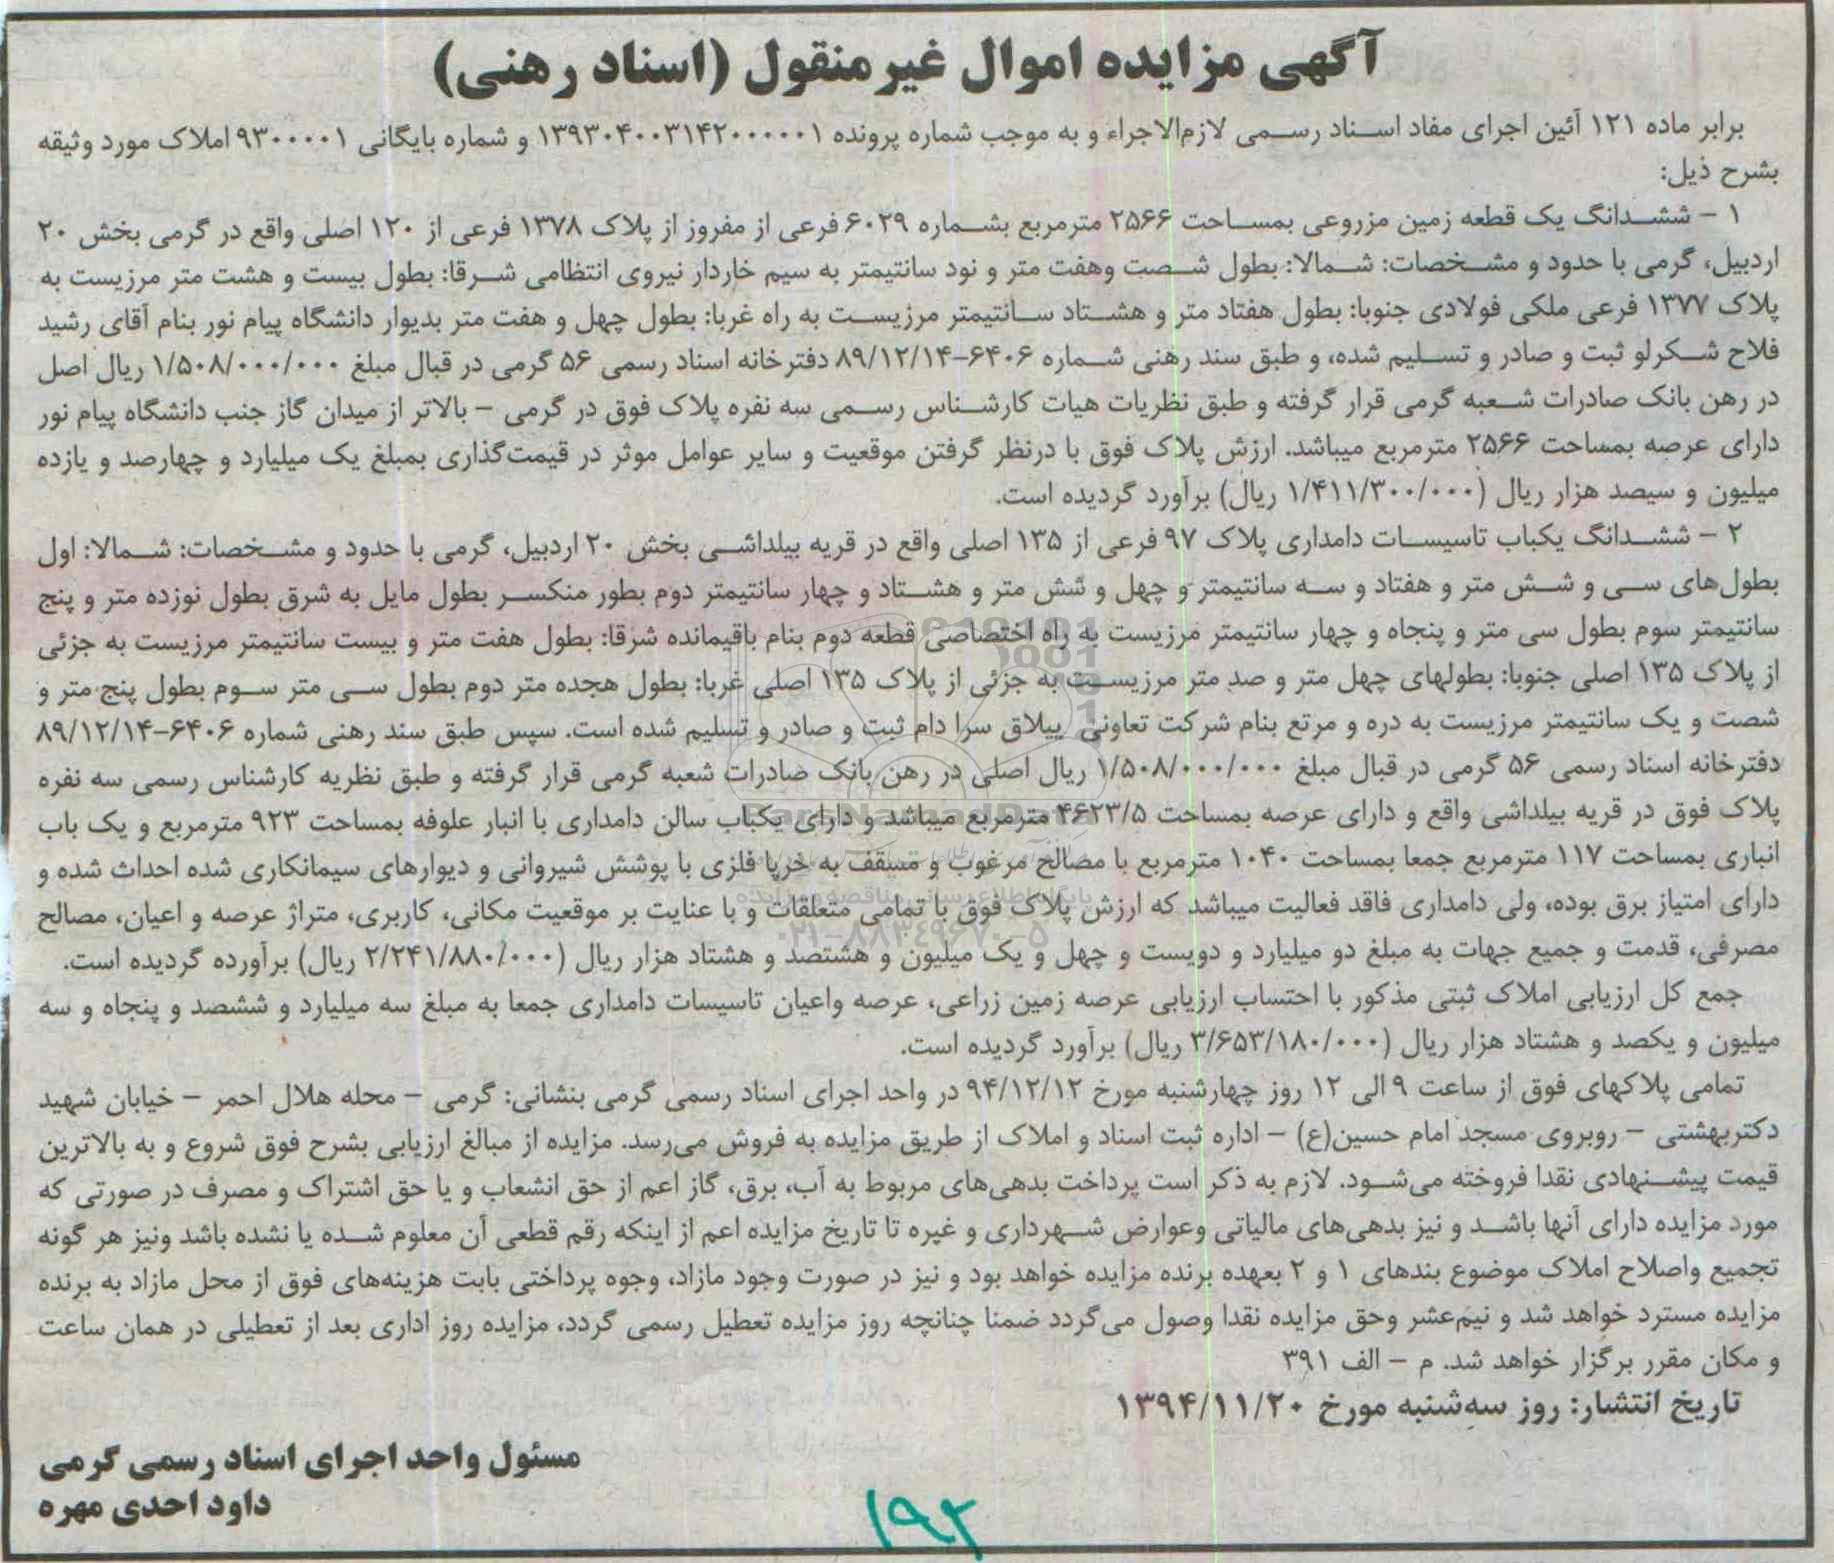 آگهی مزایده اموال غیرمنقول (اسناد رهنی)
برابر ماده ۱۲۱ آئین اجرای مفاد اسناد رسمی لازم‌الاجراء و به موجب شماره پرونده ۱۳۹۳۰۴۰۰۳۱۴۲۰۰۰۰۰۱ و شماره بایگانی ۹۳۰۰۰۰۱ املاک مورد وثیقه
بشرح ذیل:
۱ – ششدانگ یک قطعه زمین مزروعی بمساحت ۲۵۶۶ مترمربع بشماره ۶۰۲۹ فرعی از مفروز از پلاک ۱۳۷۸ فرعی از ۱۲۰ اصلی واقع در گرمی بخش ۲۰
اردبیل، گرمی با حدود و مشخصات: شمالا: بطول شصت وهفت متر و نود سانتیمتر به سیم خاردار نیروی انتظامی شرقا: بطول بیست و هشت متر مرزیست به
پلاک ۱۳۷۷ فرعی ملکی فولادی جنوبا: بطول هفتاد متر و هشتاد سانتیمتر مرزیست به راه غربا: بطول چهل و هفت متر بدیوار دانشگاه پیام نور بنام آقای رشید
فلاح شکرلو ثبت و صادر و تسلیم شده، و طبق سند رهنی شماره ۶۴۰۶–۸۹/۱۲/۱۴ دفترخانه اسناد رسمی ۵۶ گرمی در قبال مبلغ ۱/۵۰۸/۰۰۰/۰۰۰ ریال اصل
در رهن بانک صادرات شعبه گرمی قرار گرفته و طبق نظریات هیات کارشناس رسمی سه نفره پلاک فوق در گرمی – بالاتر از میدان گاز جنب دانشگاه پیام نور
دارای عرصه بمساحت ۲۵۶۶ مترمربع میباشد. ارزش پلاک فوق با درنظر گرفتن موقعیت و سایر عوامل موثر در قیمت‌گذاری بمبلغ یک میلیارد و چهارصد و یازده
میلیون و سیصد هزار ریال (۱/۴۱۱/۳۰۰/۰۰۰ ریال) برآورد گردیده است.
۲ – ششدانگ یکباب تاسیسات دامداری پلاک ۹۷ فرعی از ۱۳۵ اصلی واقع در قریه بیلداشی بخش ۲۰ اردبیل، گرمی با حدود و مشخصات: شمالا: اول
بطول‌های سی و شش متر و هفتاد و سه سانتیمتر و چهل و شش متر و هشتاد و چهار سانتیمتر دوم بطور منکسر بطول مایل به شرق بطول نوزده متر و پنج
سانتیمتر سوم بطول سی متر و پنجاه و چهار سانتیمتر مرزیست به راه اختصاصی قطعه دوم بنام باقیمانده شرقا: بطول هفت متر و بیست سانتیمتر مرزیست به جزئی
از پلاک ۱۳۵ اصلی جنوبا: بطولهای چهل متر و صد متر مرزیست به جزئی از پلاک ۱۳۵ اصلی غربا: بطول هجده متر دوم بطول سی متر سوم بطول پنج متر و
شصت و یک سانتیمتر مرزیست به دره و مرتع بنام شرکت تعاونی ییلاق سرا دام ثبت و صادر و تسلیم شده است. سپس طبق سند رهنی شماره ۶۴۰۶–۸۹/۱۲/۱۴
دفترخانه اسناد رسمی ۵۶ گرمی در قبال مبلغ ۱/۵۰۸/۰۰۰/۰۰۰ ریال اصلی در رهن بانک صادرات شعبه گرمی قرار گرفته و طبق نظریه کارشناس رسمی سه نفره
پلاک فوق در قریه بیلداشی واقع و دارای عرصه بمساحت ۴۶۲۳/۵ مترمربع میباشد و دارای یکباب سالن دامداری با انبار علوفه بمساحت ۹۲۳ مترمربع و یک باب
انباری بمساحت ۱۱۷ مترمربع جمعا بمساحت ۱۰۴۰ مترمربع با مصالح مرغوب و مسقف به خرپا فلزی با پوشش شیروانی و دیوارهای سیمانکاری شده احداث شده و
دارای امتیاز برق بوده، ولی دامداری فاقد فعالیت میباشد که ارزش پلاک فوق با تمامی متعلقات و با عنایت بر موقعیت مکانی، کاربری، متراژ عرصه و اعیان، مصالح
مصرفی، قدمت و جمیع جهات به مبلغ دو میلیارد و دویست و چهل و یک میلیون و هشتصد و هشتاد هزار ریال (۲/۲۴۱/۸۸۰/۰۰۰ ریال) برآورده گردیده است.
جمع کل ارزیابی املاک ثبتی مذکور با احتساب ارزیابی عرصه زمین زراعی، عرصه واعیان تاسیسات دامداری جمعا به مبلغ سه میلیارد و ششصد و پنجاه و سه
میلیون و یکصد و هشتاد هزار ریال (۳/۶۵۳/۱۸۰/۰۰۰ ریال) برآورد گردیده است.
تمامی پلاکهای فوق از ساعت ۹ الی ۱۲ روز چهارشنبه مورخ ۹۴/۱۲/۱۲ در واحد اجرای اسناد رسمی گرمی بنشانی: گرمی – محله هلال احمر – خیابان شهید
دکتربهشتی – روبروی مسجد امام حسین(ع) – اداره ثبت اسناد و املاک از طریق مزایده به فروش می‌رسد. مزایده از مبالغ ارزیابی بشرح فوق شروع و به بالاترین
قیمت پیشنهادی نقدا فروخته می‌شود. لازم به ذکر است پرداخت بدهی‌های مربوط به آب، برق، گاز اعم از حق انشعاب و یا حق اشتراک و مصرف در صورتی که
مورد مزایده دارای آنها باشد و نیز بدهی‌های مالیاتی وعوارض شهرداری و غیره تا تاریخ مزایده اعم از اینکه رقم قطعی آن معلوم شده یا نشده باشد ونیز هر گونه
تجمیع واصلاح املاک موضوع بندهای ۱ و ۲ بعهده برنده مزایده خواهد بود و نیز در صورت وجود مازاد، وجوه پرداختی بابت هزینه‌های فوق از محل مازاد به برنده
مزایده مسترد خواهد شد و نیم‌عشر وحق مزایده نقدا وصول می‌گردد ضمنا چنانچه روز مزایده تعطیل رسمی گردد، مزایده روز اداری بعد از تعطیلی در همان ساعت
و مکان مقرر برگزار خواهد شد. م – الف ۳۹۱
تاریخ انتشار: روز سه‌شنبه مورخ ۱۳۹۴/۱۱/۲۰
مسئول واحد اجرای اسناد رسمی گرمی
داود احدی مهره
۱۹۲
پایگاه اطلاع رسانی مناقصه و مزایده
۰۲۱–۸۸۳۴۹۶۷۰–۵